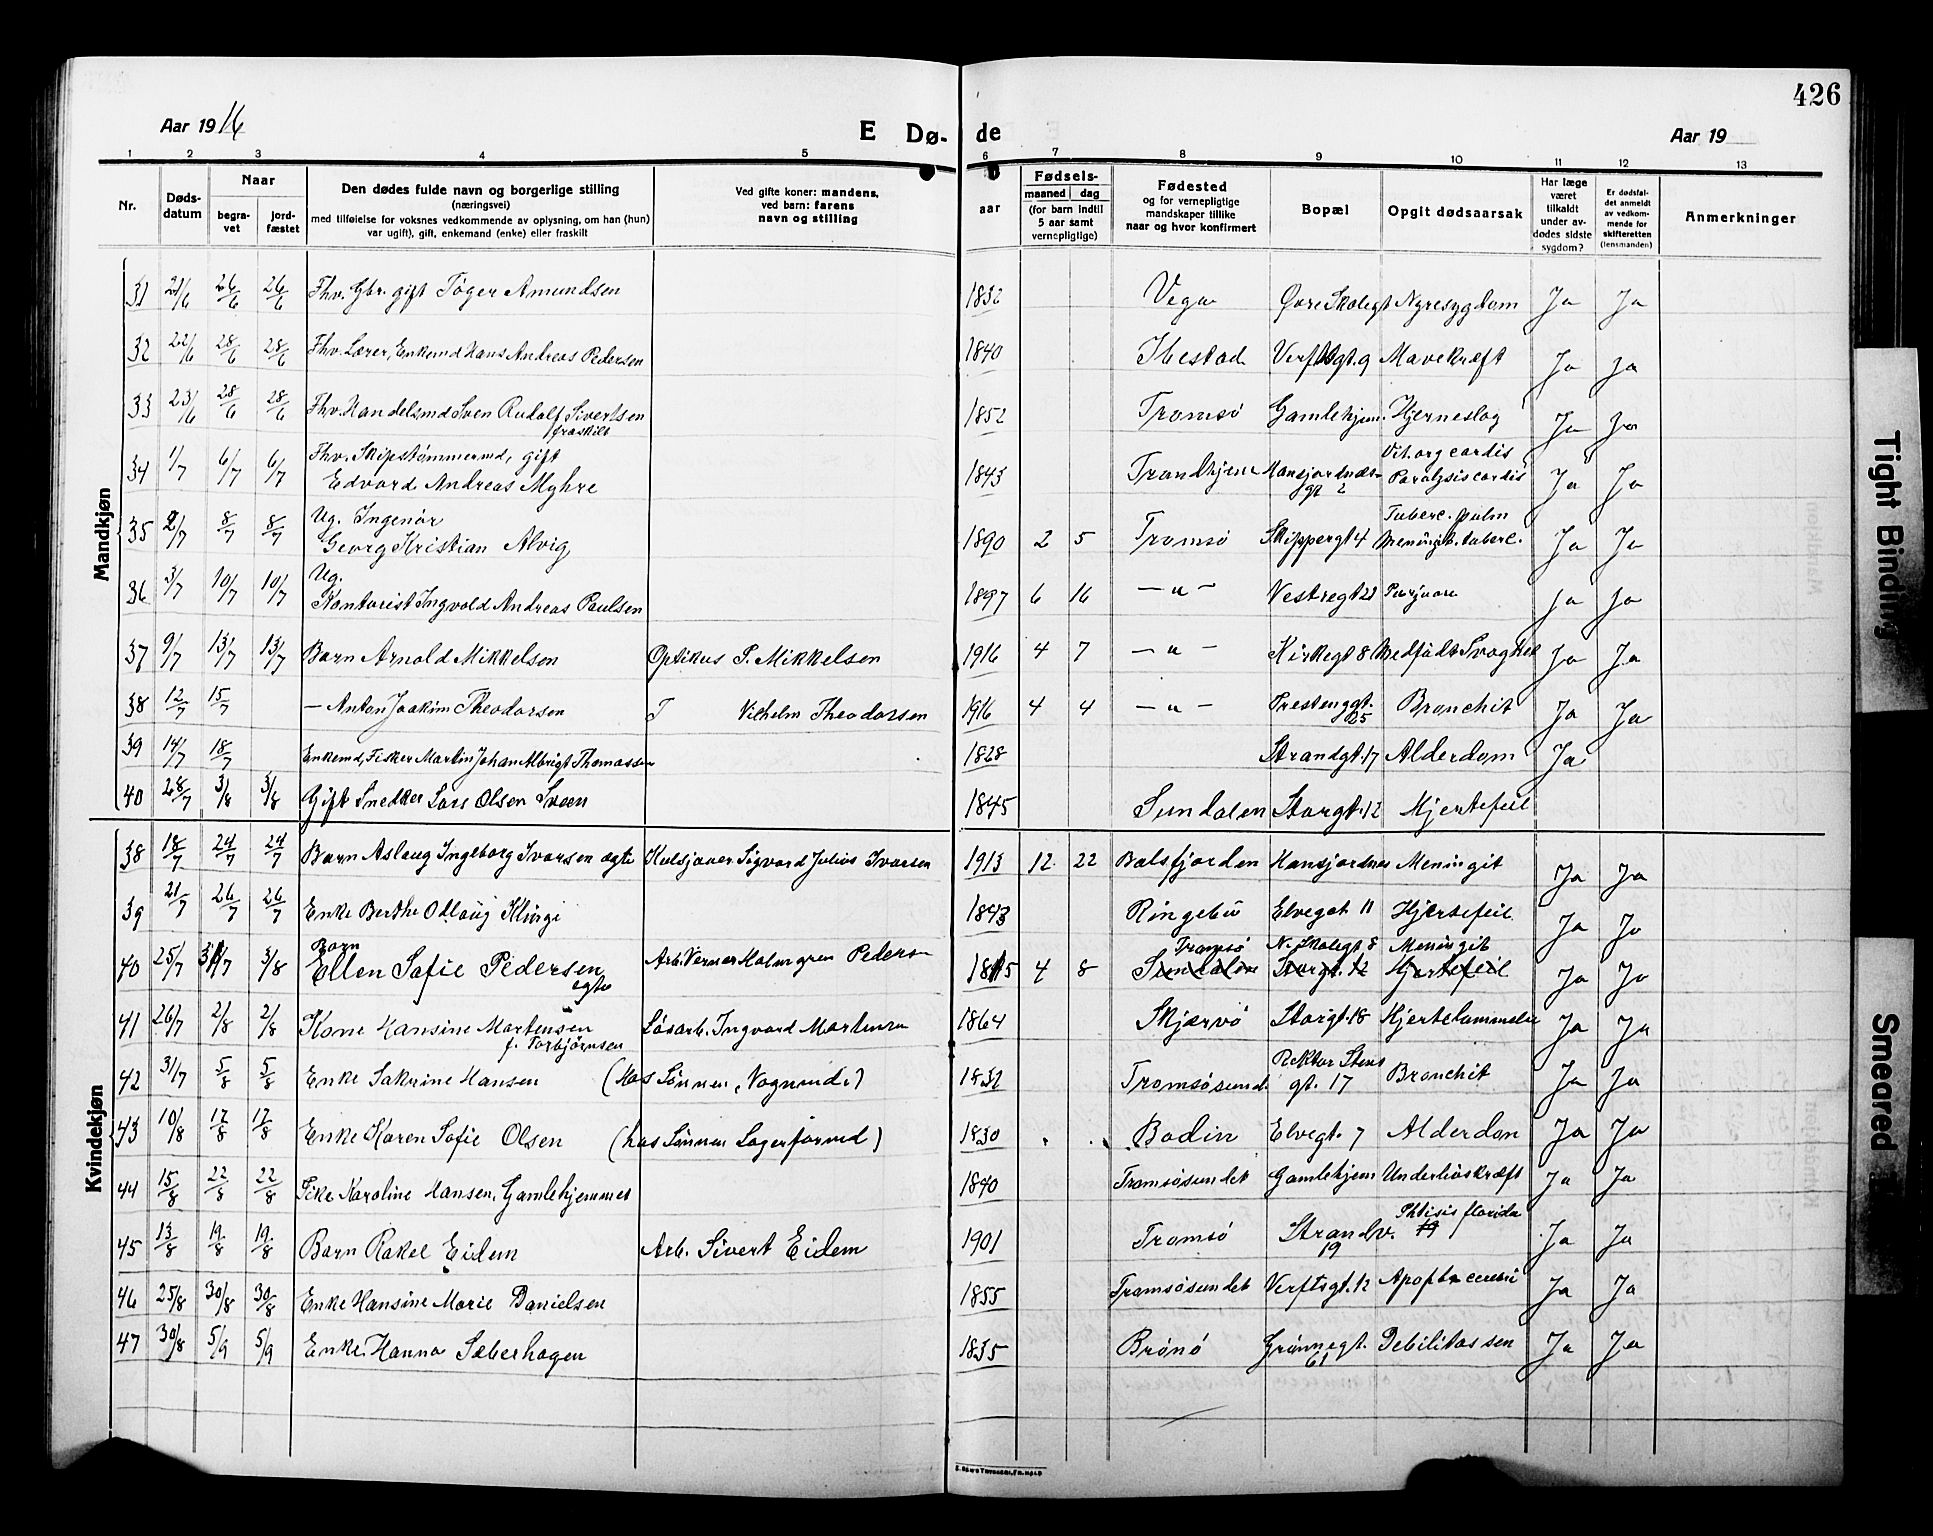 426
Aar 1916
E Dø- de
Aar 19
1 2 3 4 5 6 7 8 9 10 11 12 13
Nr.
Døds-
datum
Naar
begra-
vet
jord-
fæstet
Den dødes fulde navn og borgerlige stilling
(næringsvei)
med tilføielse for voksnes vedkommende av oplysning, om han (hun)
var ugift), gift, enkemand (enke) eller fraskilt
Ved gifte koner: mandens,
ved barn: farens
navn og stilling
aar
Fødsels-
maaned dag
(for barn indtil
5 aar samt
vernepligtige)
Fødested
og for vernepligtige
mandskaper tillike
naar og hvor konfirmert
Bopæl
Opgit dødsaarsak
Har læge
været
tilkaldt
under av-
dødes sidste
sygdom?
Er dødsfal-
det anmeldt
av vedkom-
mende for
skifteretten
(lensmanden)
Anmerkninger
Mandkjøn
31 21/6 26/6 26/6 Fhv. Gbr. gift Tøger Amundsen 1832 Vega Øvre Skolegt Nyresygdom Ja Ja
32 22/6 28/6 28/6 Fhv. Lærer, Enkemd Hans Andreas Pedersen 1840 Ibestad Verftsgt. 9 Mavekræft Ja Ja
33 23/6 28/6 28/6 Fhv. Handelsmd Sven Rudolf Sivertsen 1852 Tromsø Gamlehjem. Hjerneslag Ja Ja
fraskilt
34 1/7 6/7 6/7 Fhv. Skipstømmermd, gift Vit. org cordis
Edvard Andreas Myhre 1843 Trondhjem Hansjordnæs- Paralysis cordis Ja Ja
gt 2
35 2/7 8/7 8/7 Ug. Ingeniør Tuberc. pulm
Georg Kristian Alvig 1890 2 5 Tromsø Skippergt 4 Meningit. tuberc. Ja Ja
36 3/7 10/7 10/7 Ug.
Kontorist Ingvold Andreas Paulsen 1897 6 16 — " — Vestregt 22 Ja Ja
37 9/7 13/7 13/7 Barn Arnold Mikkelsen Optikus P. Mikkelsen 1916 4 7 — " — Kirkegt 8 Medfødt Svaghet Ja Ja
38 12/7 15/7 — Anton Joakim Theodorsen Vilhelm Theodorsen 1916 4 4 — " — Prestenggt. Bronchit Ja Ja
25
39 14/7 18/7 Enkemd, Fisker Martin Johan Albrigt Thomassen 1828 Strandgt. 17 Alderdom Ja
40 28/7 3/8 3/8 Gift Snedker Lars Olsen Sveen 1845 Sundalen Storgt. 12 Hjertefeil
Kvindekjøn
38 18/7 24/7 24/7 Barn Aslaug Ingeborg Ivarsen ægte Kulsjauer Sigvard Julius Ivarsen 1913 12 22 Balsfjorden Hansjordnes Meningit Ja Ja
39 21/7 26/7 26/7 Enke Berthe Odlaug Klingi 1843 Ringebu Elvegat 11 Hjertefeil Ja Ja
40 25/7 31/7 3/8 Barn Tromsø N. Skolegt 8 Meningit
Ellen Sofie Pedersen Arb. Verner Holmgren Pedersen 1815 4 8 Sundalen Storgt. 12 Hjertefeil Ja Ja
ægte
41 26/7 2/8 2/8 Kone Hansine Martensen Løsarb. Ingvard Martensen 1864 Skjærvø Storgt. 18 Hjertelammelse Ja Ja
f. Torbjørnsen
42 31/7 5/8 5/8 Enke Sakrine Hansen (hos Sønnen, Vognmd.) 1832 Tromsøsund. Rektor Stens Bronchit Ja Ja
gt. 17
43 10/8 17/8 17/8 Enke Karen Sofie Olsen (hos Sønnen Lagerformd) 1830 Bodin Elvegt. 7 Alderdom Ja Ja
44 15/8 22/8 22/8 Pike Karoline Hansen, Gamlehjemmet 1840 Tromsøsundet Gamlehjem Underlivskræft Ja Ja
45 13/8 19/8 19/8 Barn Rakel Eidem Arb. Sivert Eidem 1901 Tromsø Strandv. Phtisis florida Ja Ja
19
46 25/8 30/8 30/8 Enke Hansine Marie Danielsen 1855 Tromsøsundet Verftsgt. 12 cerebri Ja Ja
47 30/8 5/9 5/9 Enke Hanna Sæberhagen 1835 Brønø Grønnegt. Debilitas sen Ja Ja
61
Tight Binding
Smeared